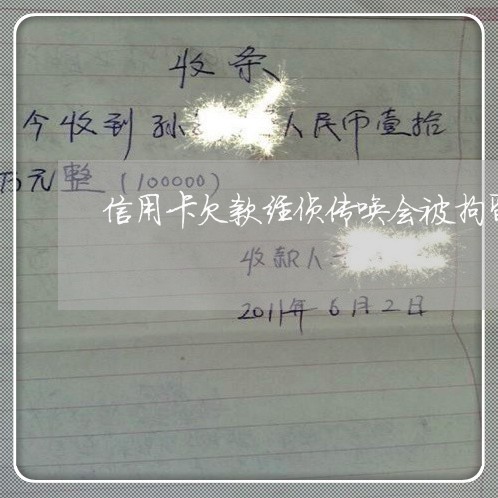 收条
今收到孙 人民币壹拾
万元整（100000）
信用卡欠款经侦传唤会被拘
收款人
2011年6月2日